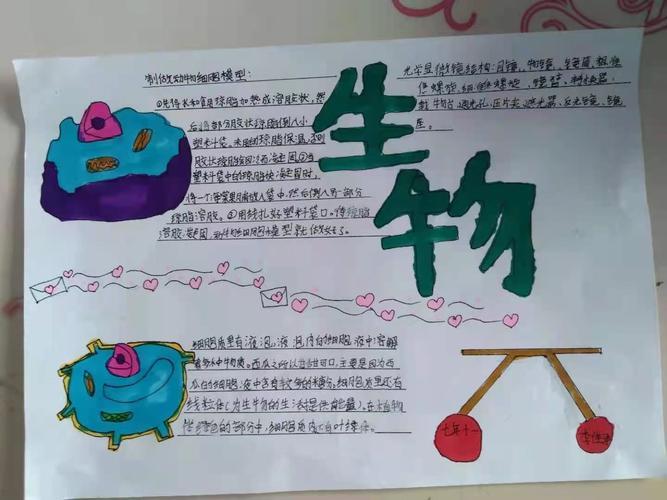 制做动物细胞模型:
①先将水和琼脂加热成溶胶状,然
后将部分胶状琼脂倒入小
塑料袋。未用的琼脂保温,否则
胶状琼脂会因冷而凝固②当
塑料袋中的琼脂快凝固时,
将一个苹果脯放入袋中,然后倒入另一部分
琼脂溶胶。③用线扎好塑料袋口。待琼脂
溶胶凝固,动物细胞模型就做好了。
生物
光学显微镜结构:目镜、物镜、镜筒、粗准
焦螺旋、细准焦螺旋、镜臂、转换器、
载物台、通光孔、压片夹、遮光器、反光镜、镜
座。
细胞质里有液泡,液泡内的细胞液中溶解
着多种物质。西瓜之所以甘甜可口,主要是因为西
瓜的细胞液中含有较多的糖分,细胞质里还有
线粒体(为生物的生活提供能量)。在植物
体绿色的部分中,细胞质内还有叶绿体。
七年十一